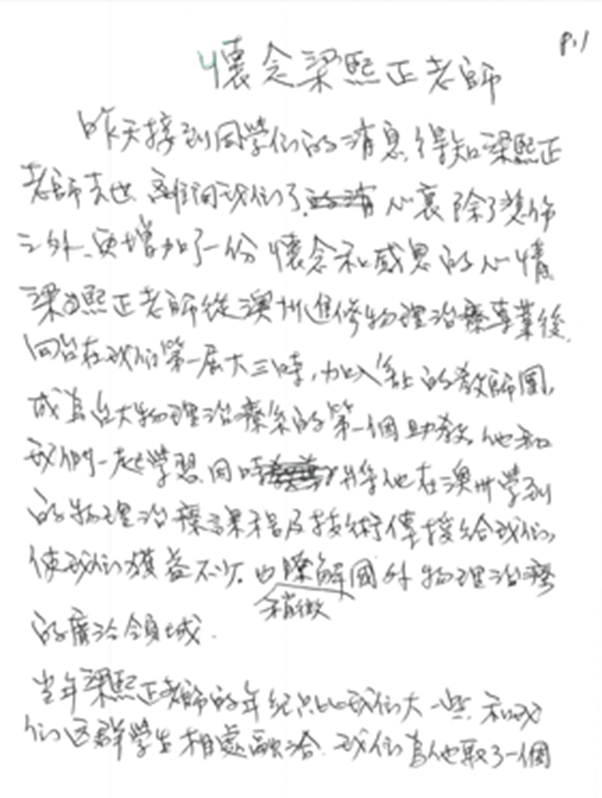 p.1
懷念梁熙正老師
昨天接到同學们的消息,得知梁熙正
老師去世,離開我们了,心裏除了悲伤
之外、更增加了一份懷念和感恩的心情
梁熙正老師從澳州進修物理治療專業後,
回台在我们第一屆大三時,加入系上的教師團,
成為台大物理治療系的第一個助教,他和
我們一起學習,同時將他在澳州學到
的物理治療課程及技術傳授給我们,
使我们獲益不少,也瞭解國外物理治療
稍微
的廣泛領域.
当年梁熙正老師的年纪只比我们大一些,和我
们这群學生相處融洽,我们為他取了一個